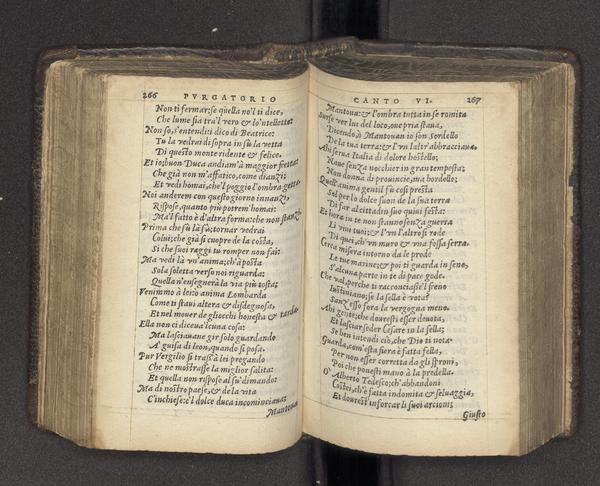 266 PVRGATORIO
Non ti fermar; se quella no'l ti dice,
Che lume sia tra'l vero & lo'ntelletto:
Non so, s'entendi: i dico di Beatrice:
Tu la vedrai di sopra in sù la vetta
Di questo monte ridente & felice.
Et io; buon Duca andiam'à maggior fretta:
Che già non m'affatico, come dianzi;
Et vedi homai, che'l poggio l'ombra getta.
Noi anderem con questo giorno innanzi,
Rispose, quanto più potrem'homai:
Ma'l fatto è d'altra forma: che non stanzi.
Prima che sij là sù; tornar vedrai
Colui; che già si cuopre de la costa,
Si che suoi raggi tu romper non fai:
Ma vedi là vn'anima; ch'à posta
Sola soletta verso noi riguarda:
Quella n'ensegnerà la via più tosta;
Venimmo à lei: ò anima Lombarda
Come ti staui altera & disdegnosa,
Et nel mouer de gliocchi honesta & tarda.
Ella non ci diceua lcuna cosa:
Ma lasciauane gir solo guardando
A' guisa di leon, quando si posa.
Pur Vergilio si trasse à lei pregando
Che ne mostrasse la miglior salita:
Et quella non rispose al su' dimando:
Ma di nostro paese, & de la vita
C'inchiese: e'l dolce duca incominciaua:
Mantoua
CANTO VI. 267
Mantoua: & l'ombra tutta in se romita
Surse ver lui del loco, oue pria staua,
Dicendo; ò Mantouan io son Sordello
De la tua terra: & l'un l'altr'abbracciaua.
Ahi serua Italia di dolore hostello;
Naue senza nocchier in gran tempesta;
Non donna di prouincie, ma bordello;
Quell'anima gentil fù così presta
Sol per lo dolce suon de la sua terra
Di far al cittadin suo quiui festa:
Et hora in te non stanno senza guerra
Li viui tuoi: & l'vn l'altro si rode
Di quei, ch'vn muro & vna fossa serra.
Cerca misera intorno da le prode
Le tue marine; & poi ti guarda in seno,
S'alcuna parte in te di pace gode.
Che val, perche ti racconciasse'l freno
Iustiniano; se la sella è vota?
Sanz'esso fora la vergogna meno.
Ahi gente; che douresti esser deuota,
Et lasciar seder Cesare in la sella;
Se ben intendi ciò, che Dio ti nota.
Guarda, com'esta fiera è fatta fella,
Per non esser corretta da gli sproni,
Poi che ponesti mano à la predella.
O' Alberto Tedesco; ch'abbandoni
Costei, ch'è fatta indomita & seluaggia,
Et douresti inforcar li suoi arcioni;
Giusto